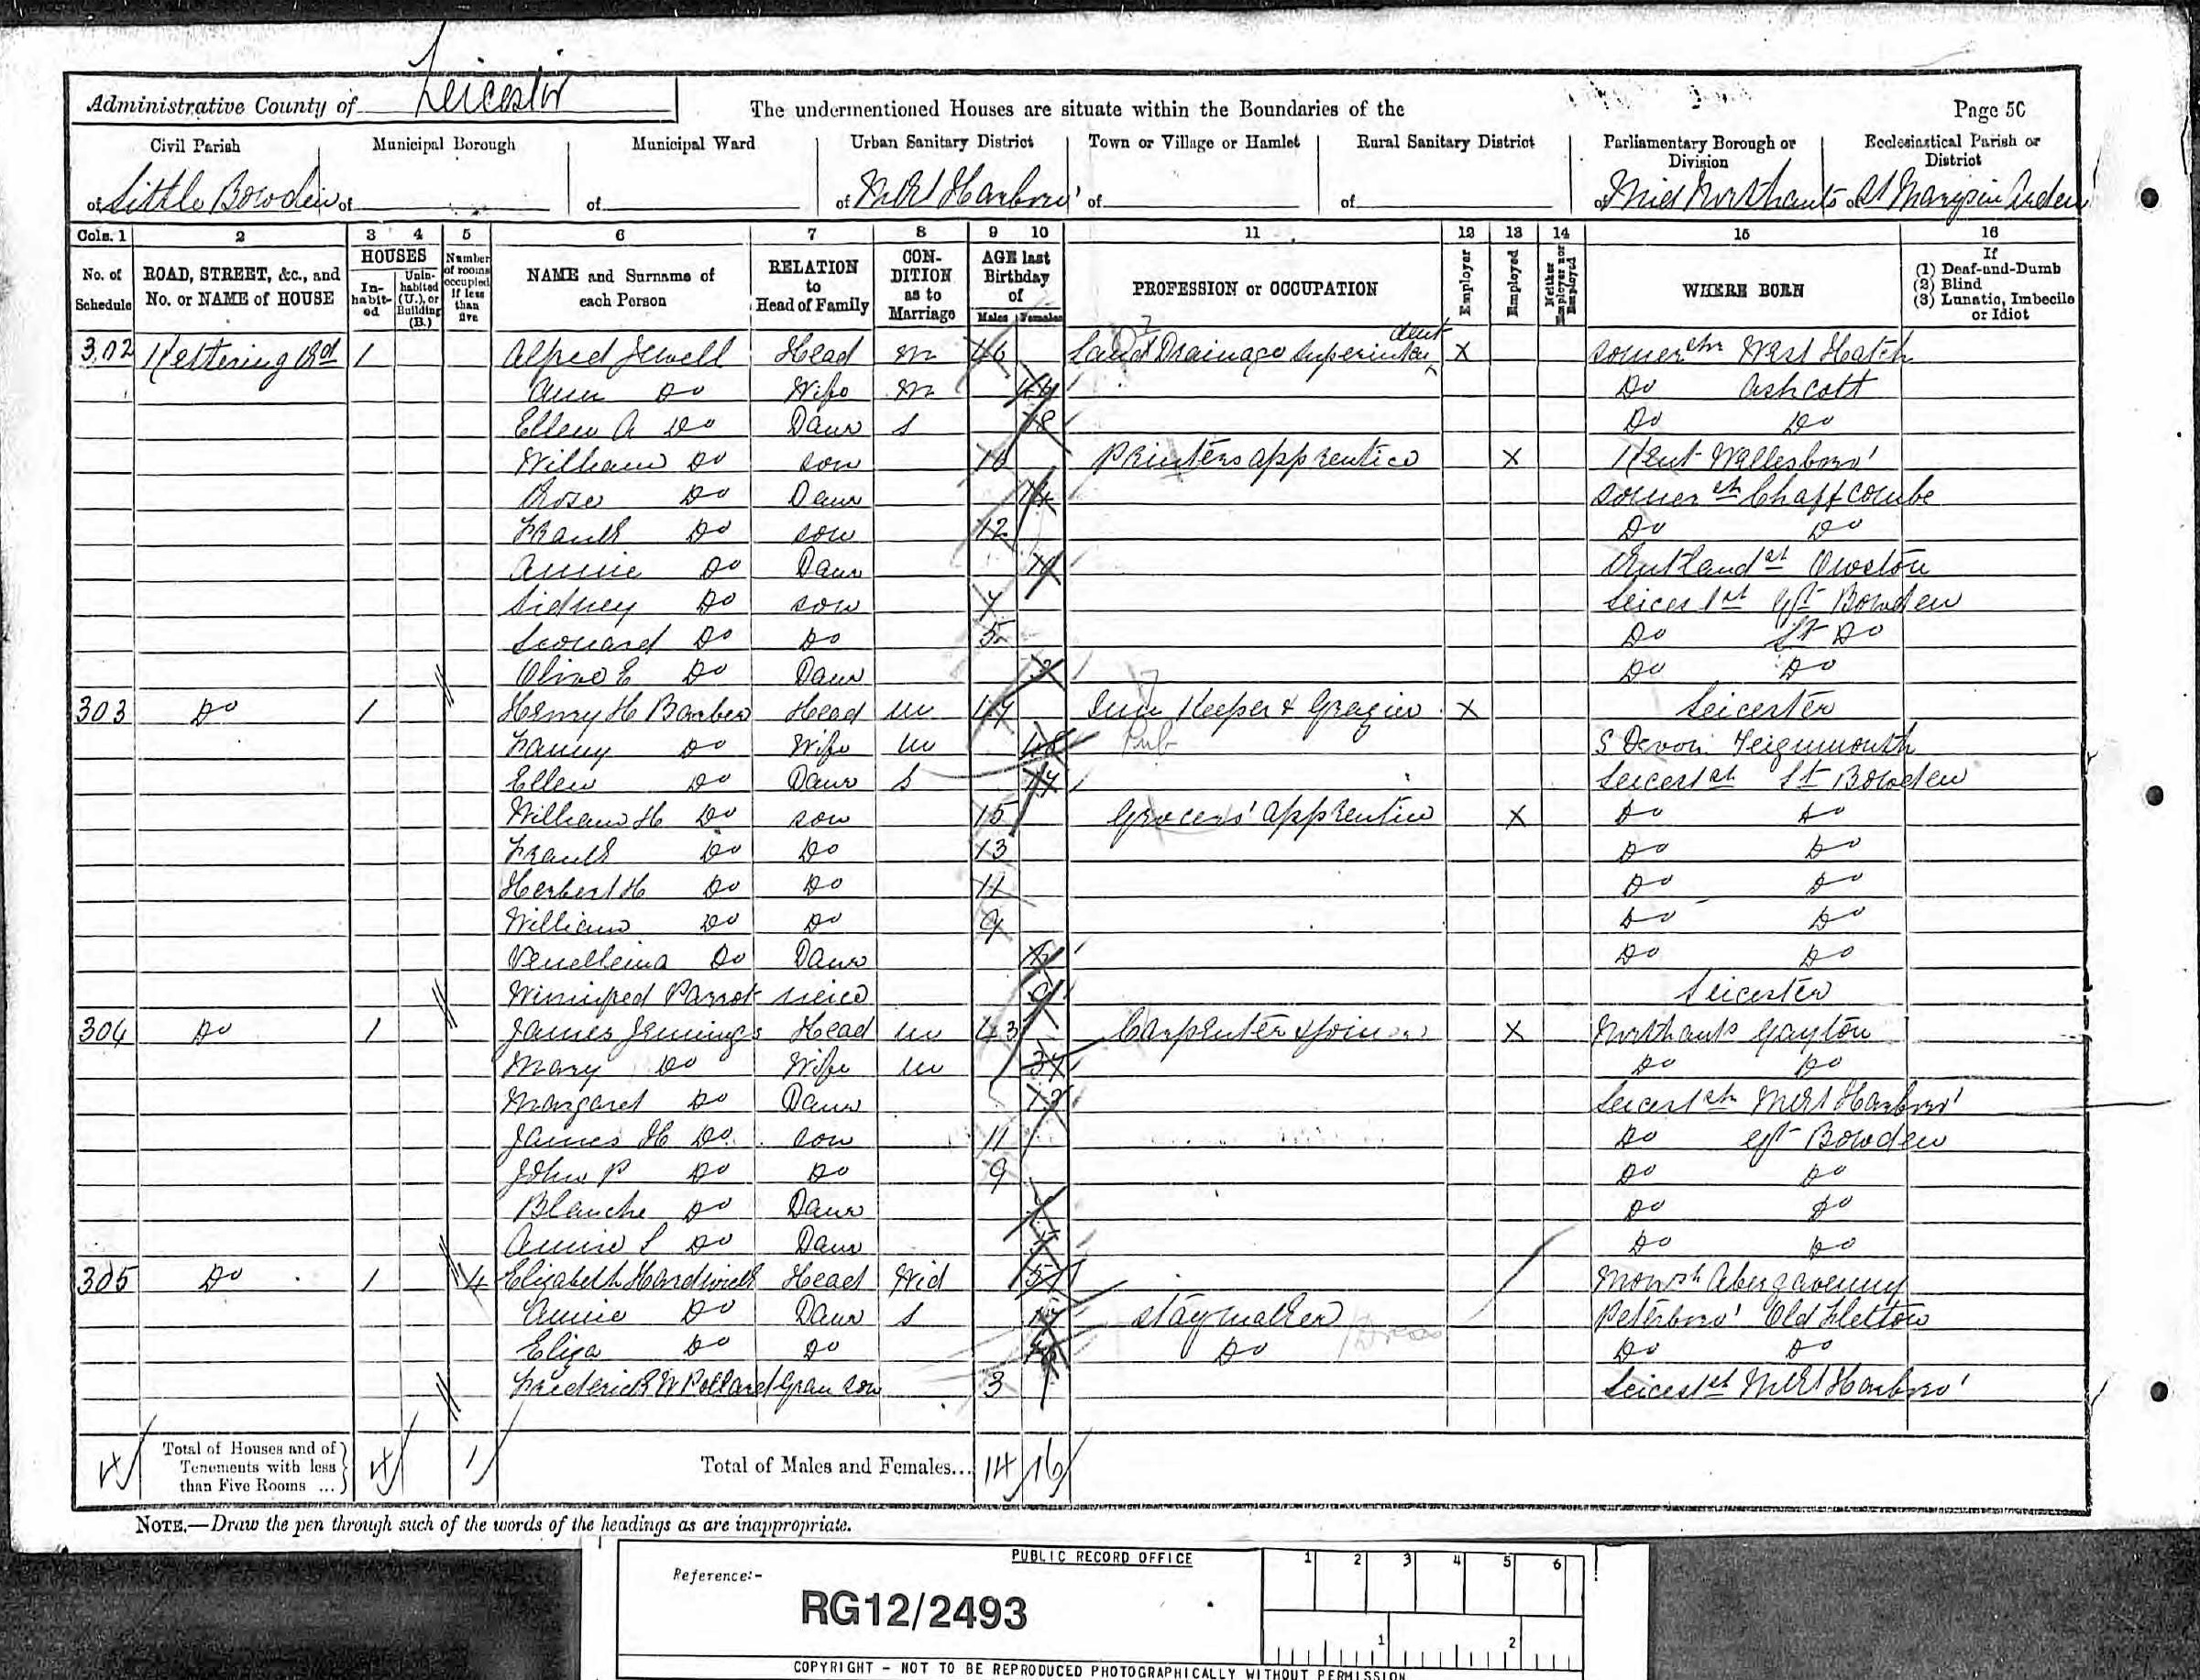 Administrative County of Leicester
The undermentioned Houses are situate within the Boundaries of the
Page 50
Civil Parish Municipal Borough Municipal Ward Urban Sanitary District Town or Village or Hamlet Rural Sanitary District Parliamentary Borough or Division Ecclesiastical Parish or District
of Little Bowden of of of Mkt Harboro' of of of Mid Northants of St Mary in Arden
Cols. 1 2 3 4 5 6 7 8 9 10 11 12 13 14 15 16
No. of Schedule ROAD, STREET, &c., and No. or NAME of HOUSE HOUSES In-habit-ed Unin-habited (U.), or Building (B.) Number of rooms occupied if less than five NAME and Surname of each Person RELATION to Head of Family CON-DITION as to Marriage AGE last Birthday of Males Females PROFESSION or OCCUPATION Employer Employed Neither Employer nor Employed WHERE BORN If (1) Deaf-and-Dumb (2) Blind (3) Lunatic, Imbecile or Idiot
302 Kettering Rd 1 Alfred Jewell Head M 46 Land Drainage Superintendent X Somersetr West Hatch
Ann Do Wife M Do Ashcott
Ellen A Do Daur S 18 Do Do
William Do son 16 Printers apprentice X Kent Willesboro'
Rose Do Daur 14 Somerset Chaffcombe
Frank Do son 12 Do Do
Annie Do Daur 10 Rutland Owston
Sidney Do son 7 Leicest Gt Bowden
Leonard Do Do 5 Do Lt Do
Olive E Do Daur Do Do
303 Do 1 Henry H Barber Head M 47 Inn Keeper & Grazier X Leicester
Fanny Do Wife M 48 Pub S Devon Teignmouth
Ellen Do Daur S 17 Leicest Lt Bowden
William H Do son 15 Grocers' apprentice X Do Do
Frank Do Do 13 Do Do
Herbert H Do Do 11 Do Do
William Do Do 9 Do Do
Do Daur Do Do
Winnifred Parrot niece 9 Leicester
304 Do 1 James Jennings Head M 43 Carpenter & Joiner X Northants Gayton
Mary Do Wife M Do Do
Margaret Do Daur Leicest Mkt Harboro'
James H Do son 11 Do Gt Bowden
John P Do Do 9 Do Do
Blanche Do Daur Do Do
Annie L Do Daur Do Do
305 Do 1 4 Elizabeth Hardwick Head Wid 57 Monsh Abergavenny
Annie Do Daur S Staymaker Peterboro' Old Fletton
Eliza Do Do Do Do Do
Frederick W Pollard Gran son 3 Leicest Mkt Harboro'
4 Total of Houses and of Tenements with less than Five Rooms ... 4 1 Total of Males and Females... 14 16
NOTE.—Draw the pen through such of the words of the headings as are inappropriate.
PUBLIC RECORD OFFICE
1 2 3 4 5 6
Reference:-
RG12/2493
1 2
COPYRIGHT - NOT TO BE REPRODUCED PHOTOGRAPHICALLY WITHOUT PERMISSION